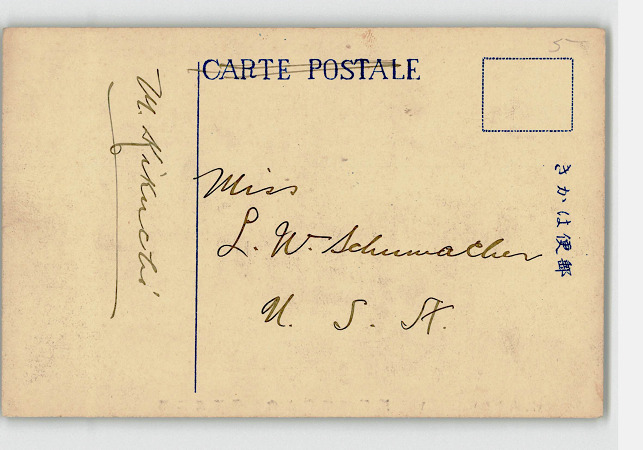 CARTE POSTALE
5
きかは便郵
Miss
L. W. Schumacher
U. S. A.
M. Kikuchi